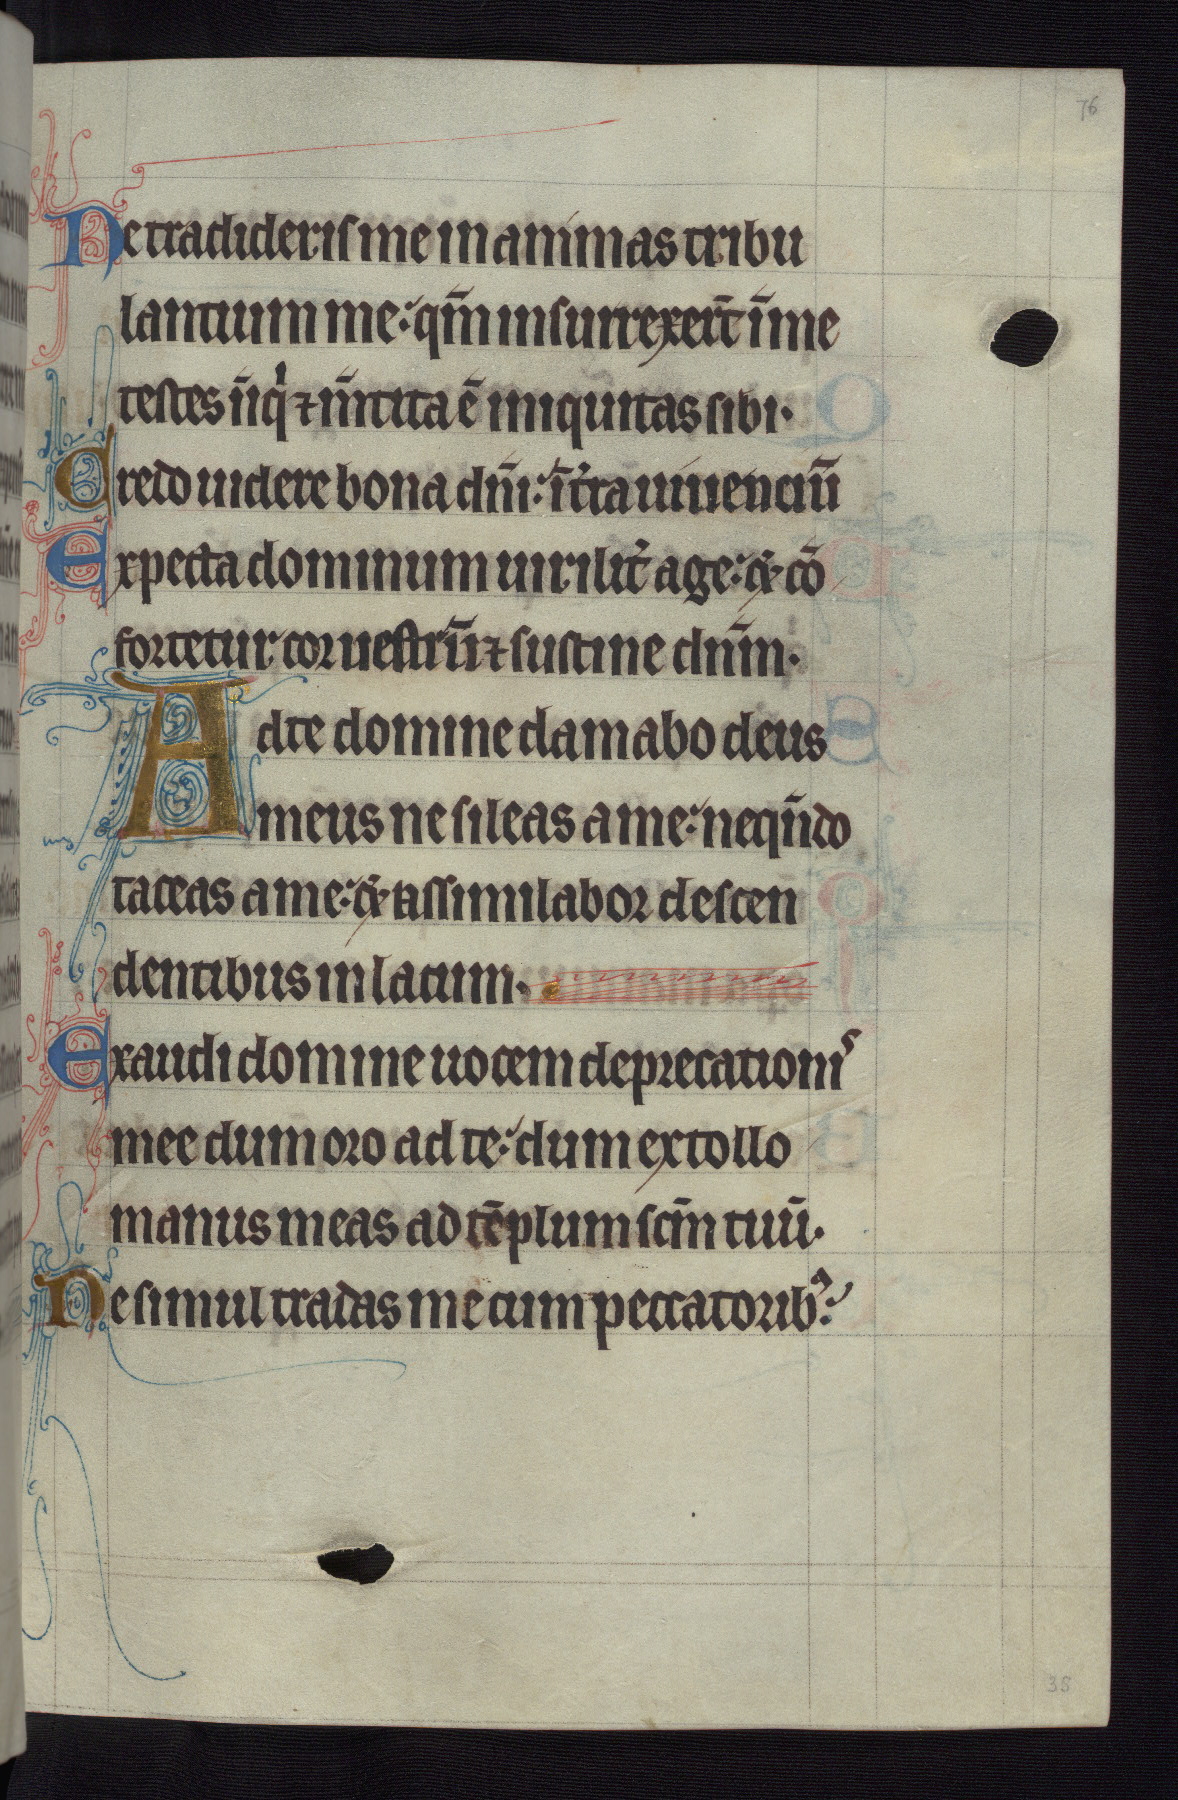 76
Ne tradideris me in animas tribu
lantium me: qm̄ insurrexerт̄ ī me
testes īiqⁱ ⁊ m̄tita ē iniquitas sibi.
Credo uidere bona dn̄i: ī t̄ra uiuenciū
Expecta dominum uirilit̄ age: ⁊ cō
fortetur cor uestrū ⁊ sustine dn̄m.
Ad te domine clamabo deus
meus ne sileas a me: neqn̄do
taceas a me: ⁊ assimilabor descen
dentibus in lacum.
Exaudi domine uocem deprecationiˢ
mee dum oro ad te: dum extollo
manus meas ad tēplum scm̄ tuū.
Ne simul tradas me cum peccatoribꝰ:
38